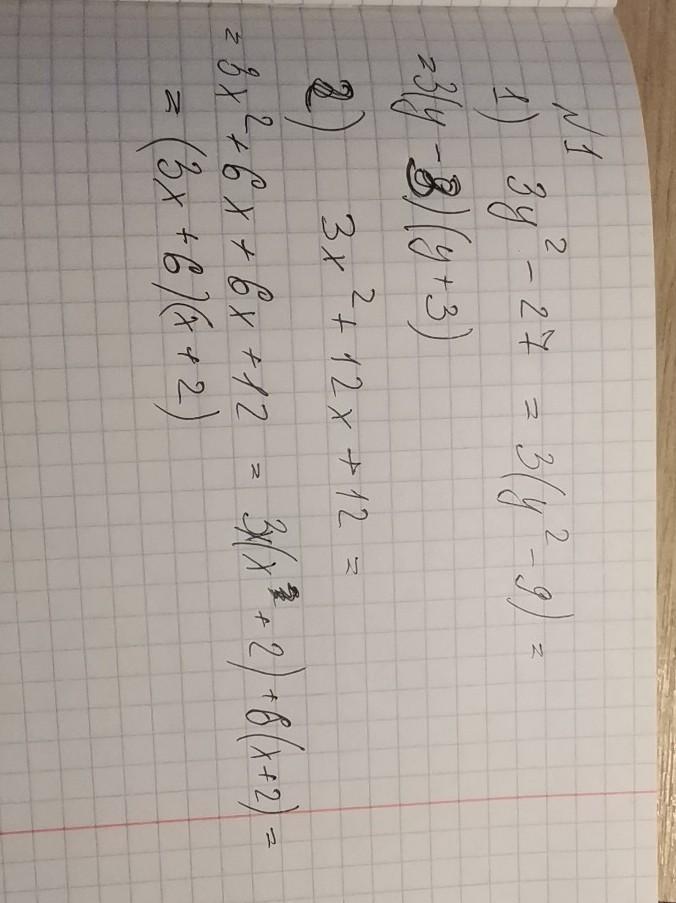 N1
1) 3y² - 27 = 3(y² - 9) =
= 3(y - 3)(y + 3)
2) 3x² + 12x + 12 =
= 3x² + 6x + 6x + 12 = 3x(x + 2) + 6(x + 2) =
= (3x + 6)(x + 2)